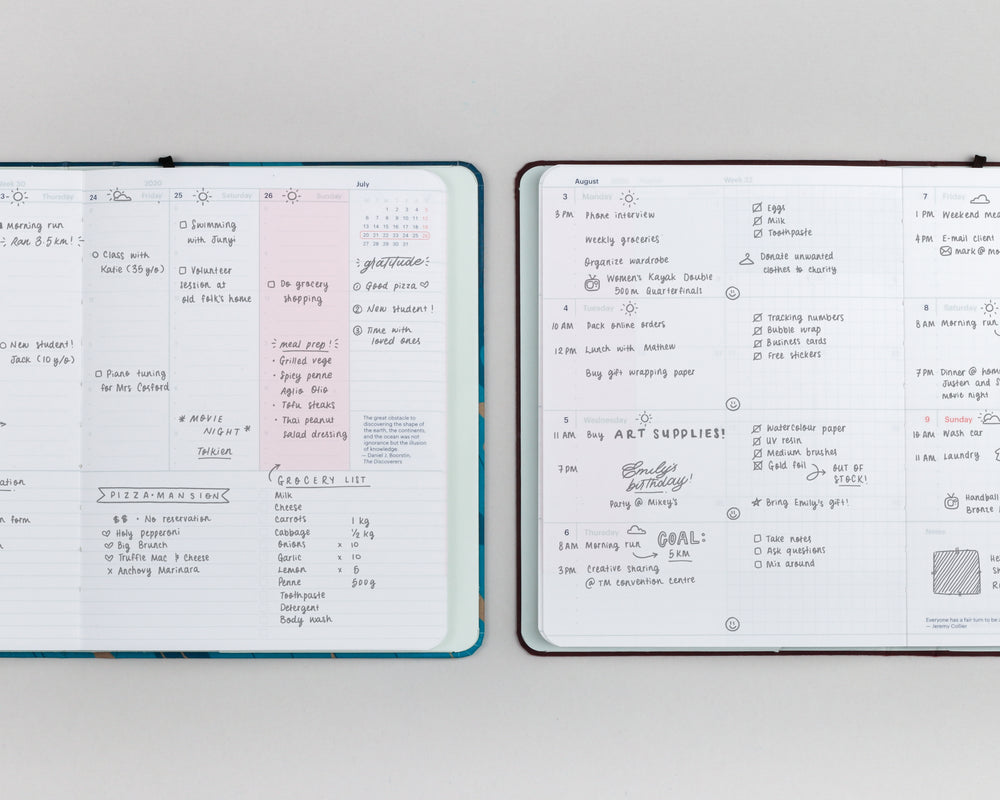 Week 30
2020
July
Thursday
24 Friday
25 Saturday
26 Sunday
Morning run
Ran 3.5km!
New student!
Jack (10 y/o)
Class with
Katie (35 y/o)
Piano tuning
for Mrs Cosford
Swimming
with Junyi
Volunteer
session at
old folk's home
* MOVIE
NIGHT *
Tolkien
Do grocery
shopping
meal prep!
• Grilled vege
• Spicy penne
Aglio Olio
• Tofu steaks
• Thai peanut
salad dressing
1 2 3 4 5
6 7 8 9 10 11 12
13 14 15 16 17 18 19
20 21 22 23 24 25 26
27 28 29 30 31
gratitude
1 Good pizza
2 New student!
3 Time with
loved ones
The great obstacle to
discovering the shape of
the earth, the continents,
and the ocean was not
ignorance but the illusion
of knowledge.
— Daniel J. Boorstin,
The Discoverers
PIZZA•MANSION
$$ • No reservation
Holy pepperoni
Big Brunch
Truffle Mac & Cheese
x Anchovy Marinara
GROCERY LIST
Milk
Cheese
Carrots 1 kg
Cabbage 1/2 kg
Onions x 10
Garlic x 10
Lemon x 5
Penne 500g
Toothpaste
Detergent
Body wash
August
Week 32
3 Monday
3 PM Phone interview
Weekly groceries
Organize wardrobe
Women's Kayak Double
500m Quarterfinals
Eggs
Milk
Toothpaste
Donate unwanted
clothes to charity
4 Tuesday
10 AM Pack online orders
12 PM Lunch with Mathew
Buy gift wrapping paper
Tracking numbers
Bubble wrap
Business cards
Free stickers
5 Wednesday
11 AM Buy ART SUPPLIES!
7 PM Emily's
birthday!
Party @ Mikey's
Watercolour paper
UV resin
Medium brushes
Gold foil OUT OF
STOCK!
Bring Emily's gift!
6 Thursday
8 AM Morning run GOAL:
5 KM
3 PM Creative sharing
@ TM convention centre
Take notes
Ask questions
Mix around
7 Friday
1 PM Weekend mea
4 PM E-mail client
mark@mo
8 Saturday
8 AM Morning run
7 PM Dinner @ hom
Justen and S
movie night
9 Sunday
10 AM Wash car
11 AM Laundry
Handball
Bronze
Notes
Everyone has a fair turn to be a
— Jeremy Collier